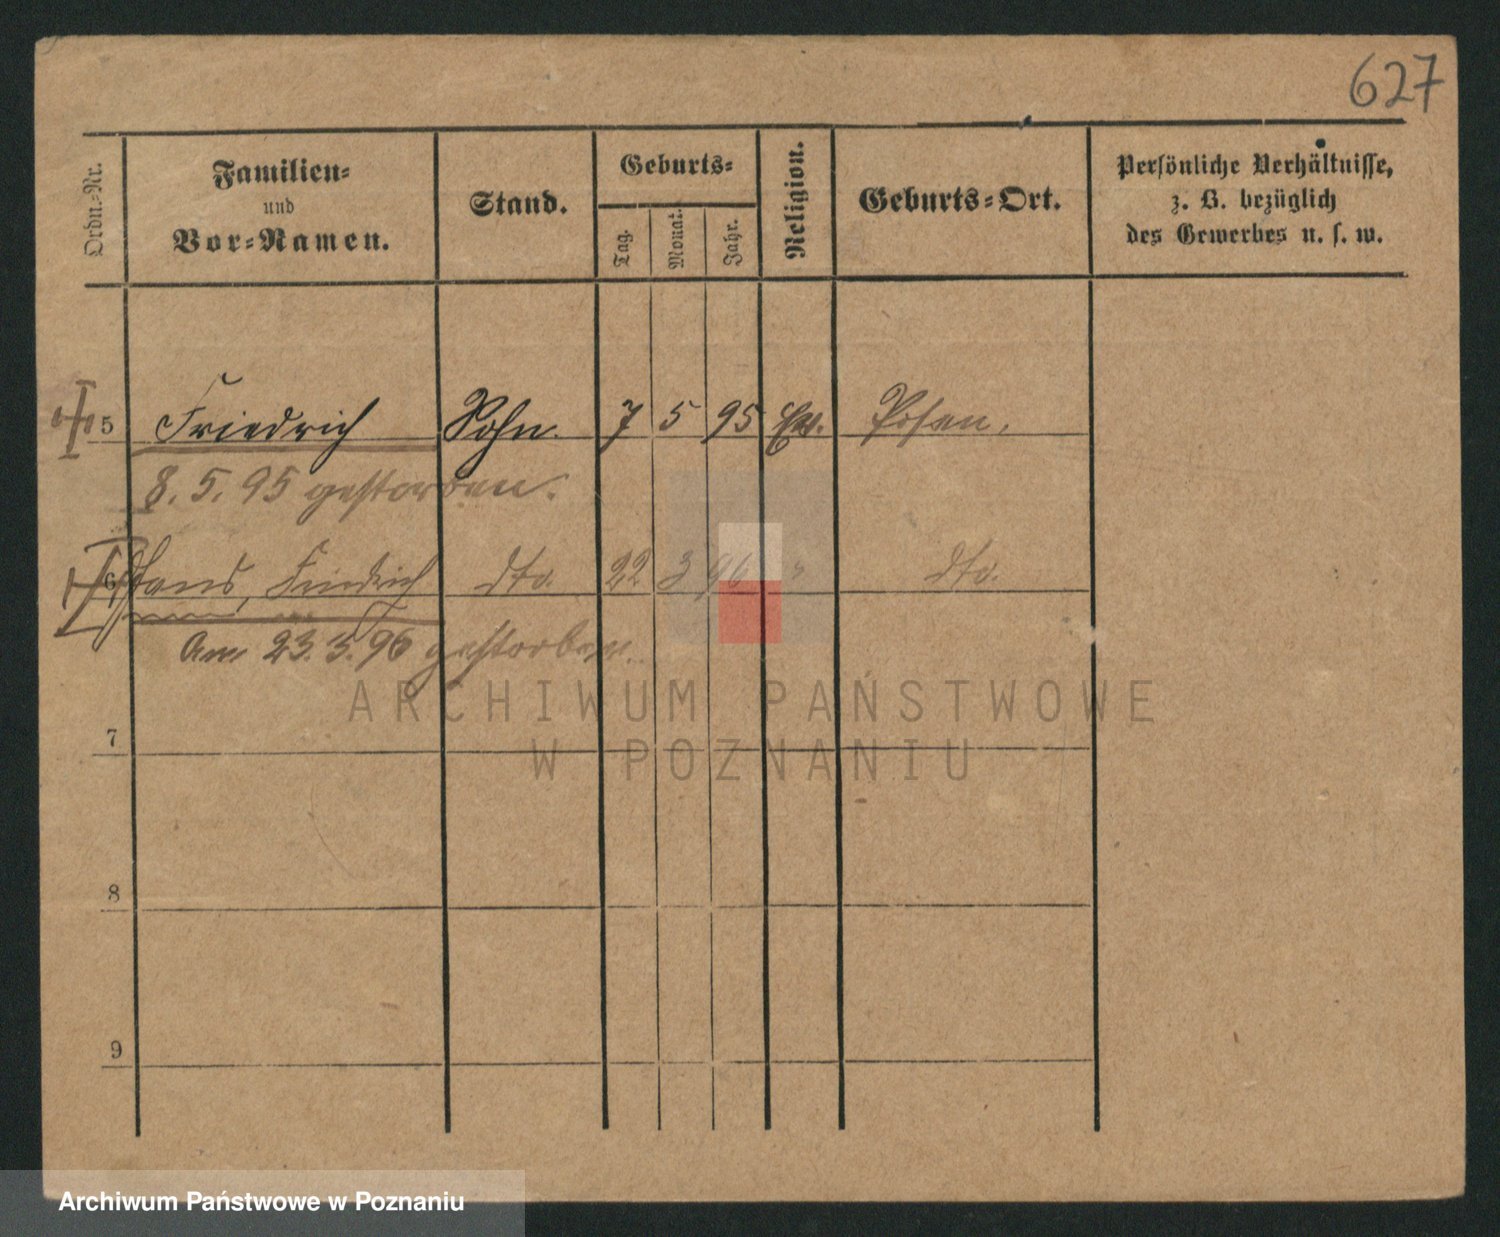 627
Ordn.-Nr.
Familien-
und
Vor-Namen.
Stand.
Geburts-
Tag.
Monat.
Jahr.
Religion.
Geburts-Ort.
Persönliche Verhältnisse,
z. B. bezüglich
des Gewerbes u. s. w.
5 Friedrich Sohn. 7 5 95 Ev. Posen.
8. 5. 95 gestorben.
6 Hans, Friedrich dto. 22 3 96 " dto.
Am 23. 3. 96 gestorben.
ARCHIWUM PAŃSTWOWE
W POZNANIU
7
8
9
Archiwum Państwowe w Poznaniu